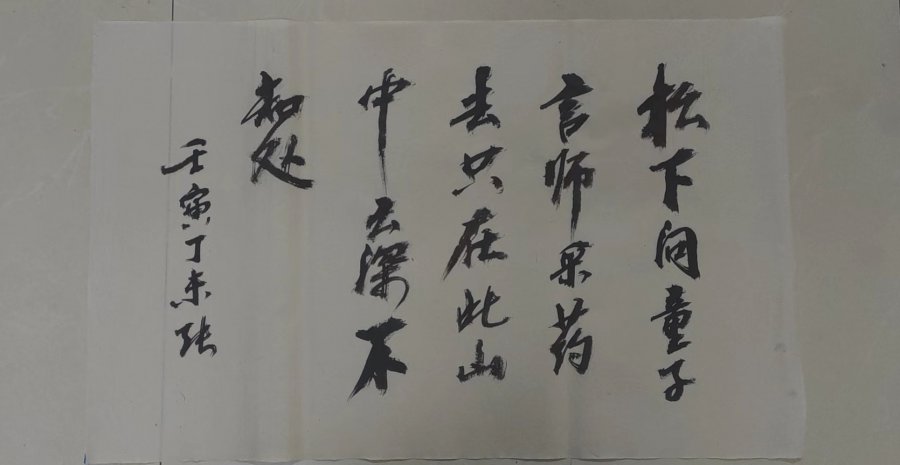 松下问童子
言师采药
去只在此山
中云深不
知处
壬寅丁未张